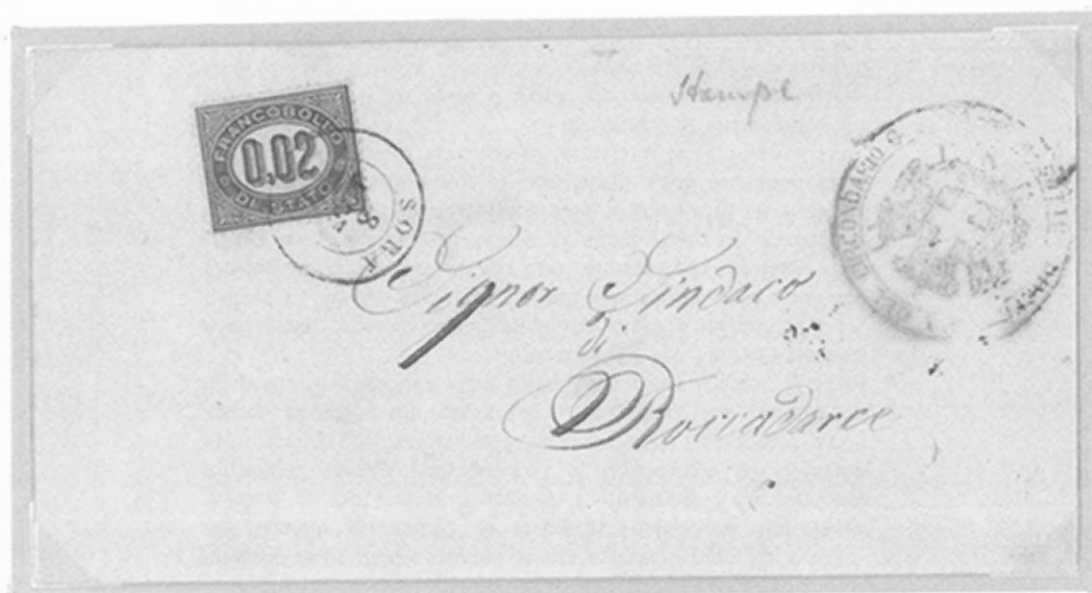 Stampe
FRANCOBOLLO
0,02
DI STATO
SORA
CIRCONDARIO
Signor Sindaco
di
Roccadarce